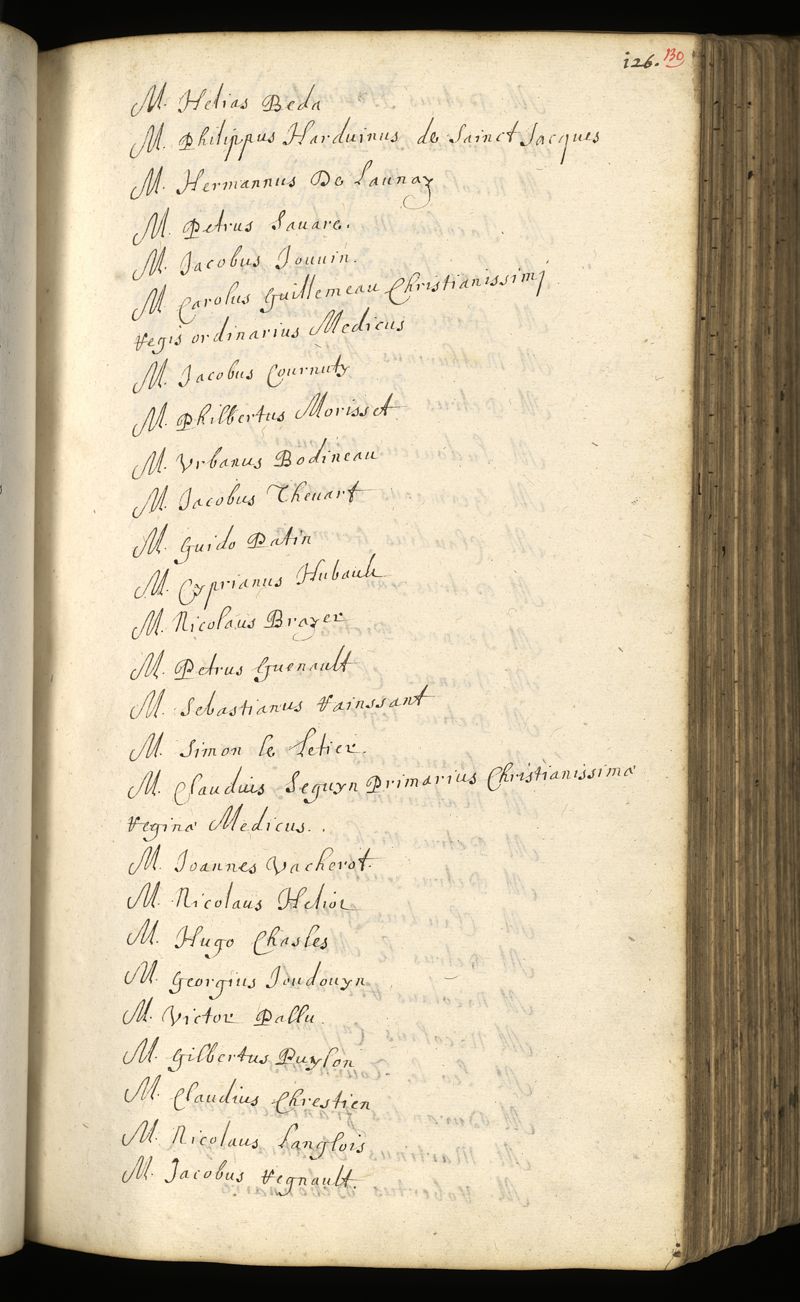 126. 130
M. Helias Beda
M. Philippus Harduinus de Sainct Jacques
M. Hermannus De Launay
M. Petrus Sauare.
M. Jacobus Jouuin.
M. Carolus Guillemeau Christianissimj
Regis ordinarius Medicus
M. Jacobus Cournuty
M. Philbertus Morisset
M. Vrbanus Bodineau
M. Jacobus Theuart
M. Guido Patin
M. Cyprianus Hubault
M. Nicolaus Brayer
M. Petrus Guenault
M. Sebastianus Rainssant
M. Simon le Letier.
M. Claudius Seguyn Primarius Christianissimæ
Reginæ Medicus.
M. Joannes Vacherot.
M. Nicolaus Heliot
M. Hugo Chasles
M. Georgius Joudouyn
M. Victor Pallu.
M. Gilbertus Puylon
M. Claudius Chrestien
M. Nicolaus Langlois
M. Jacobus Regnault.